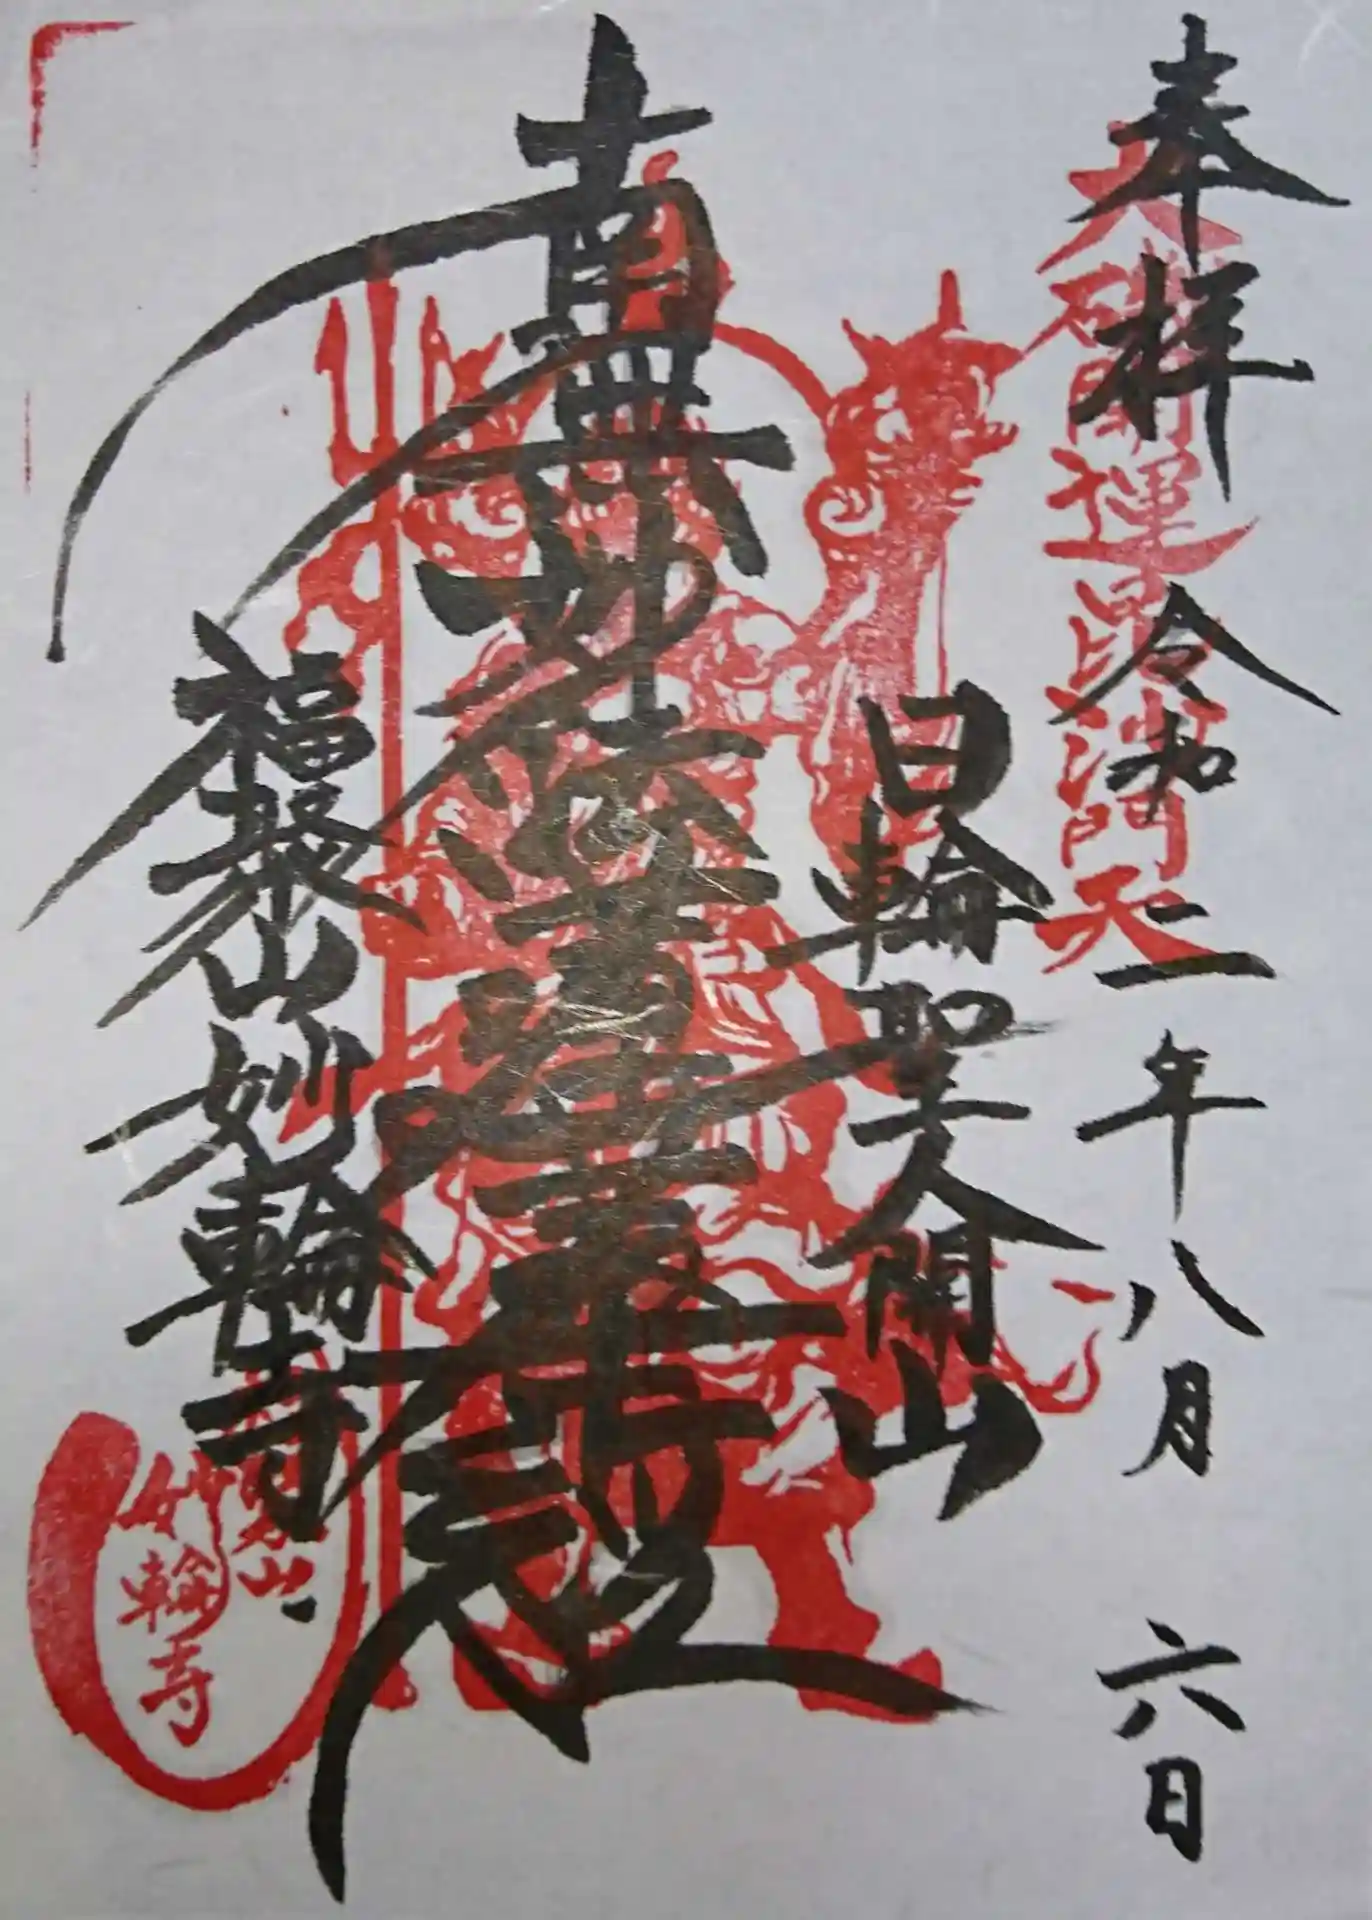 奉拝 令和二年八月六日
大磯開運毘沙門天
日輪聖人開山
南無妙法蓮華経
福聚山妙輪寺
妙輪寺